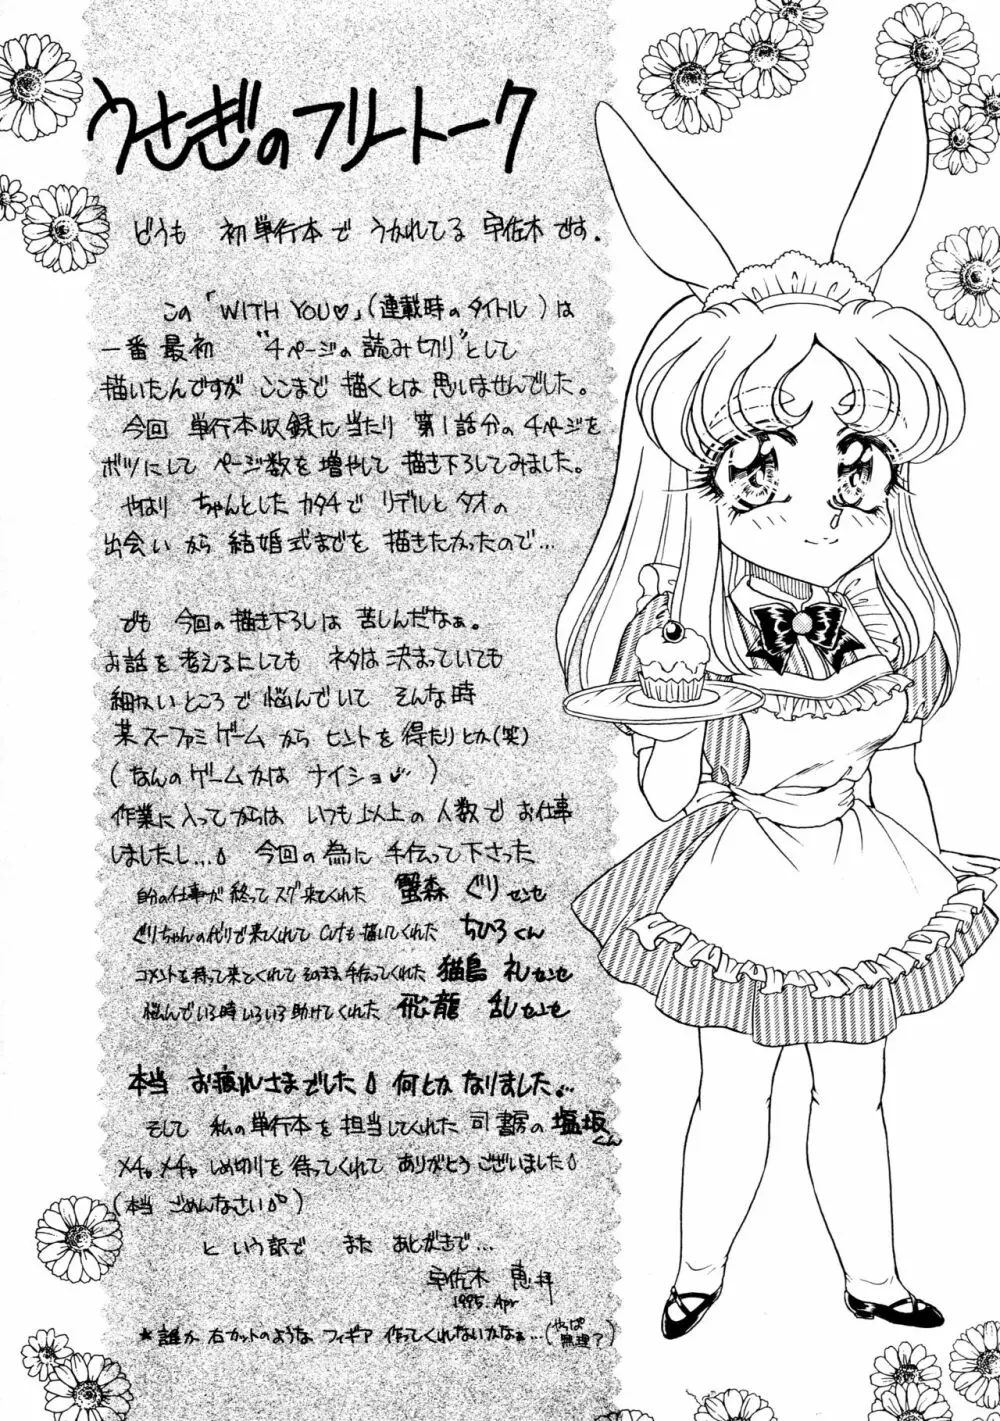 うさぎのフリートーク
どうも 初単行本で うかれてる 宇佐木です。
この「WITH YOU♡」(連載時のタイトル)は
一番最初 "4ページの読み切り"として
描いたんですが ここまで 描くとは 思いませんでした。
今回 単行本収録に当たり 第1話分の4ページを
ボツにして ページ数を増やして 描き下ろしてみました。
やはり ちゃんとした カタチで リデルと タオの
出会い から 結婚式までを 描きたかったので…
でも 今回の描き下ろしは 苦しんだなぁ。
お話を考えるにしても ネタは決まっていても
細かいところで悩んでいて そんな時
某スーファミゲームから ヒントを得たりとか(笑)
(なんのゲームかは ナイショ♡)
作業に入ってからは いつも以上の人数で お仕事
しましたし… 今回の為に 手伝って下さった
自分の仕事が終ってスグ来てくれた 蟹森 ぐりセンセ
ぐりちゃんの代りで来てくれて Cutも描いてくれた ちひろくん
コメントを持って来てくれて そのまま手伝ってくれた 猫島 礼センセ
悩んでいる時いろいろ助けてくれた 飛龍 乱センセ
本当 お疲れさまでした 何とか なりました…
そして 私の単行本を担当してくれた 司書房の 塩坂くん
メチャメチャ しめ切りを待ってくれて ありがとう ございました
(本当 ごめんなさい)
と いう訳で、また あとがきで…
宇佐木 恵拝
1995. Apr
★誰か 右カットのような フィギア 作ってくれないかなぁ…(やっぱ無理?)